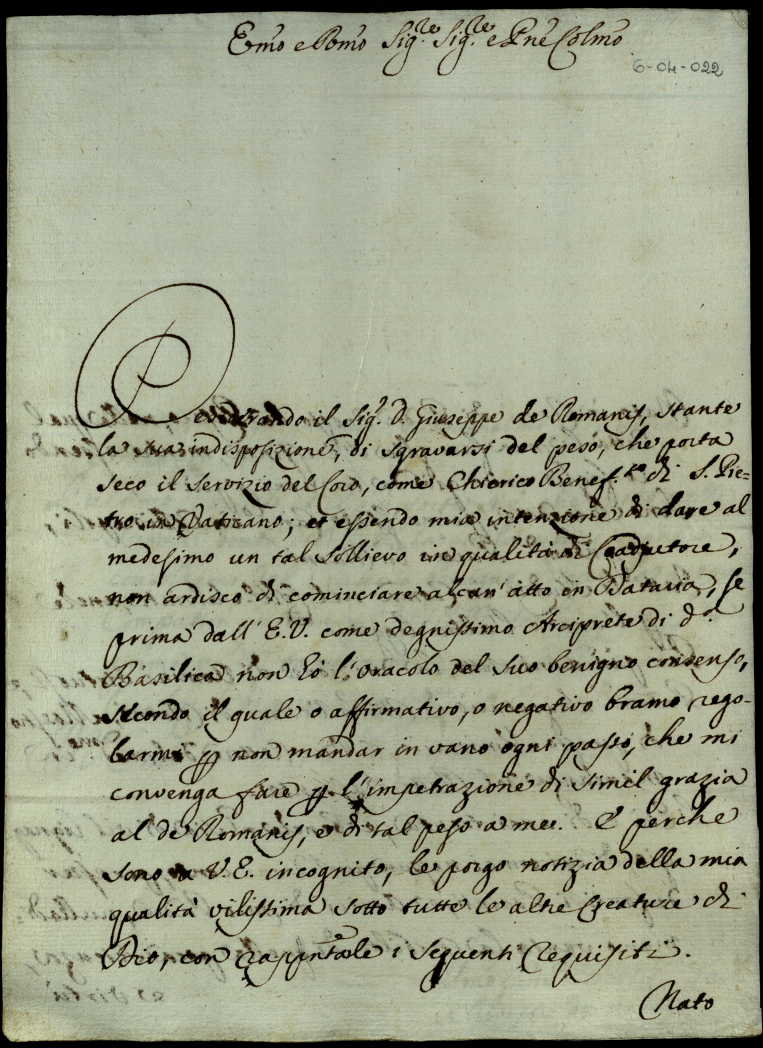 Em̃o e Rm̃o Sig.re Sig.re e Pñe Colmõ
6-04-022
Desiderando il Sig.r D. Giuseppe de Romanis, stante
la sua indisposizione, di sgravarsi del peso, che porta
seco il servizio del Coro, come Chierico Benef.to di S. Pie=
tro in Vaticano; et essendo mia intenzione di dare al
medesimo un tal sollievo in qualità di Coadjutore,
non ardisco di cominciare alcun' atto in Dataria, se
prima dall' E.V. come degnissimo Arciprete di d.a
Basilica non hò l'oracolo del suo benigno consenso,
secondo il quale o affirmativo, o negativo bramo rego-
larmi p non mandar in vano ogni passo, che mi
convenga fare p l'impetrazione di simil grazia
al de Romanis, e di tal peso a me. E perche
sono a V.E. incognito, le porgo notizia della mia
qualità vilissima sotto tutte le altre Creature di
Dio, con rappñtarle i seguenti requisiti.
Nato